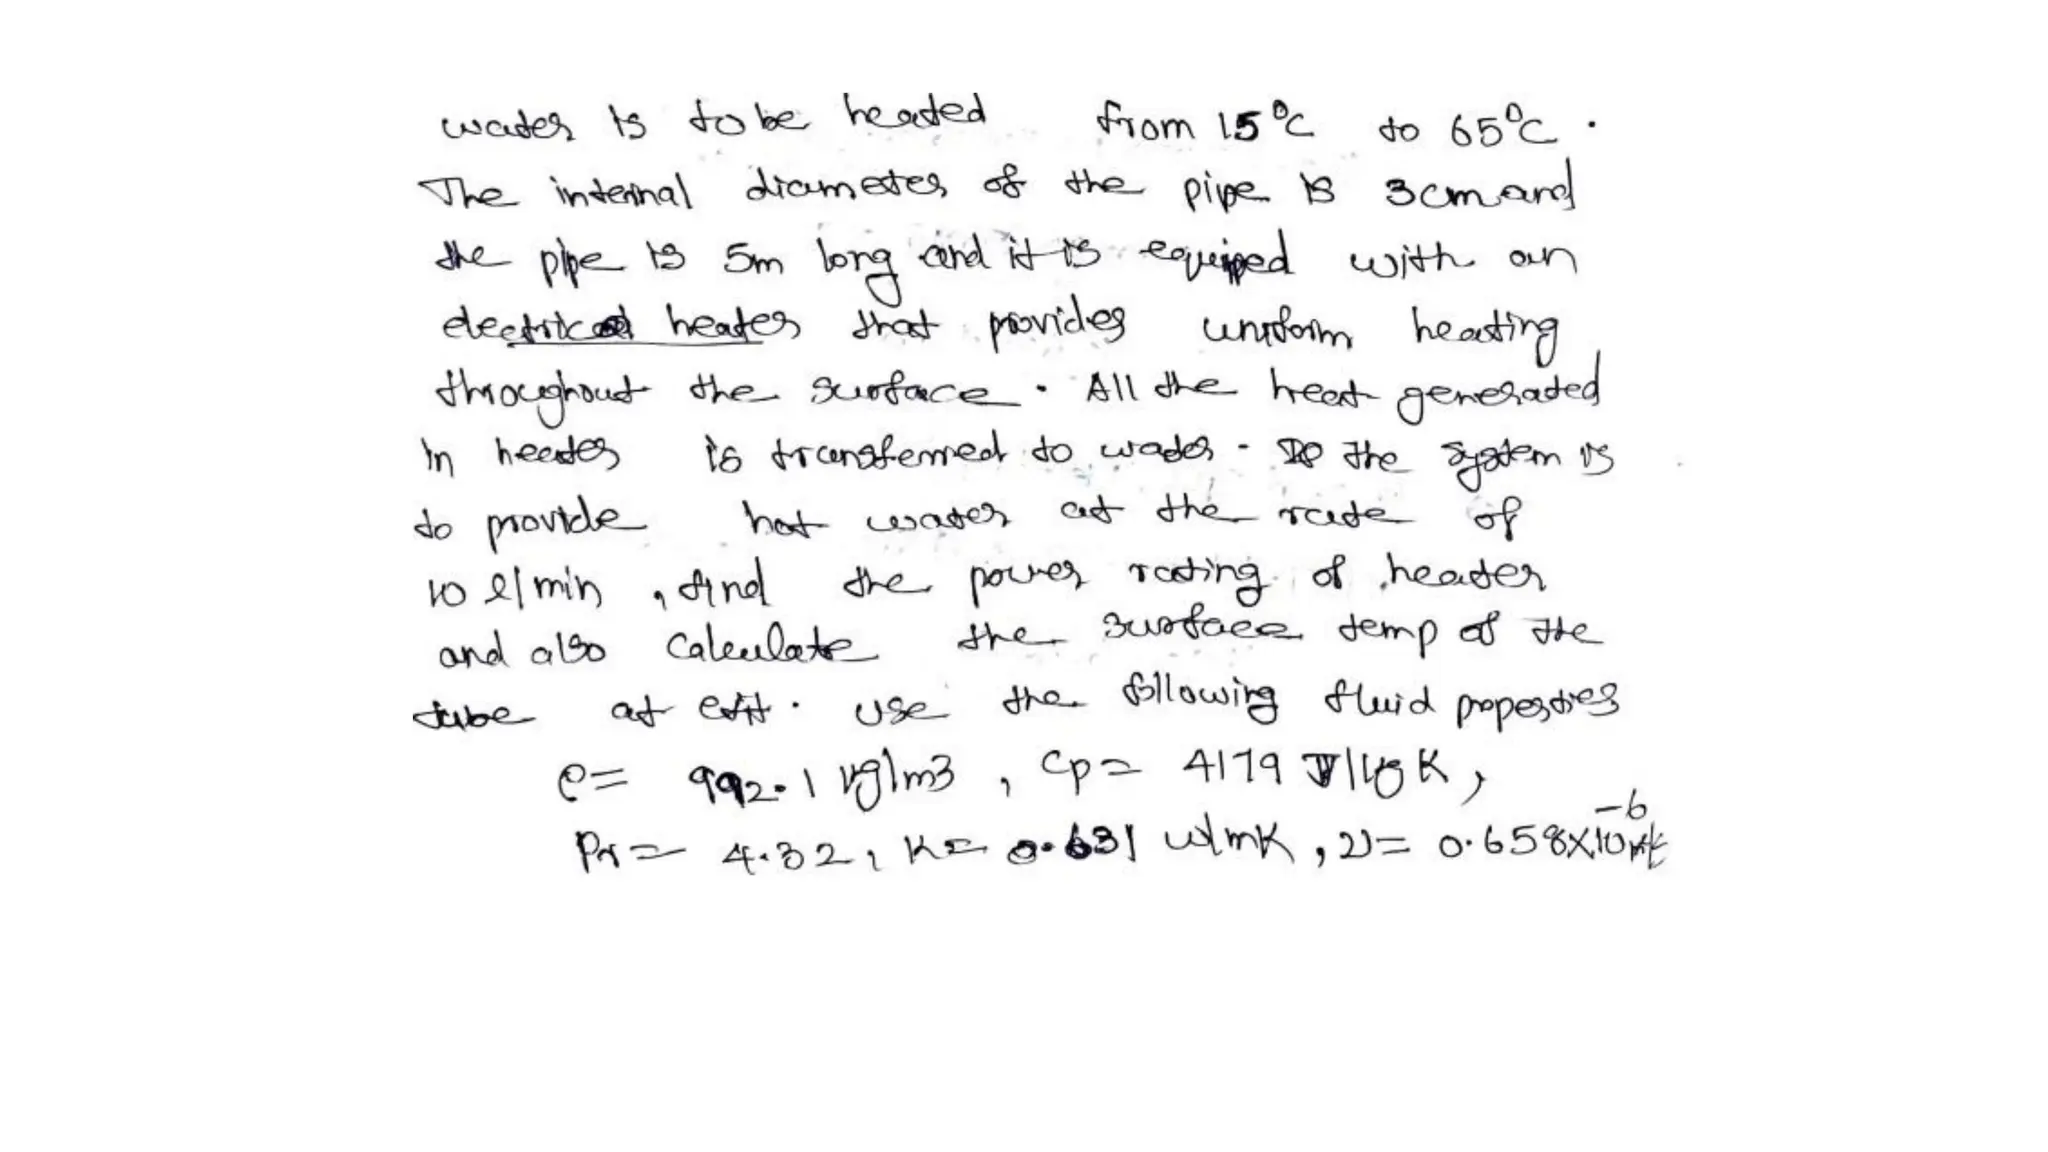 water is to be heated from 15°C to 65°C.
The internal diameter of the pipe is 3cm and
the pipe is 5m long and it is equipped with an
electrical heater that provides uniform heating
throughout the surface. All the heat generated
in heater is transferred to water. If the system is
to provide hot water at the rate of
10 l/min, find the power rating of heater
and also calculate the surface temp of the
tube at exit. use the following fluid properties
ρ = 992.1 kg/m3, Cp = 4179 J/kg K,
Pr = 4.32, K = 0.631 w/mK, ν = 0.658×10⁻⁶